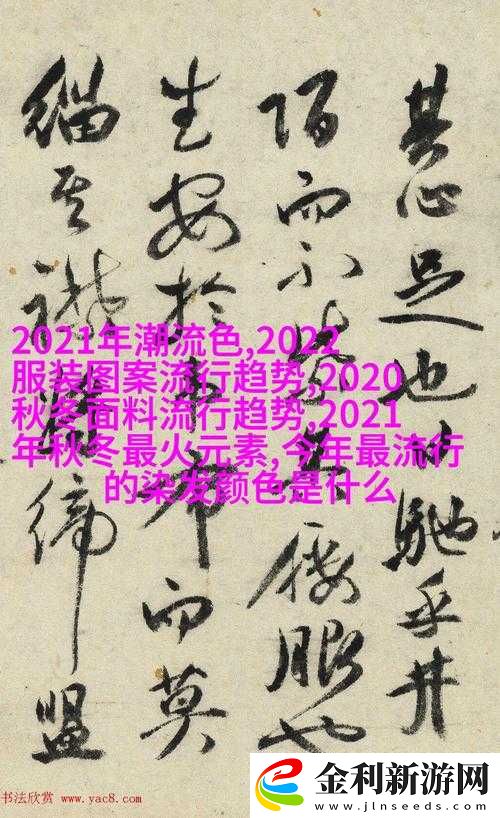 其心足也馳乎井
陌而不服也
生安於布而莫
其締盟
2021年潮流色,2022
服装图案流行趋势,2020
秋冬面料流行趋势,2021
年秋冬最火元素,今年最流行
的染发颜色是什么
书法欣赏 www.yac8.com
金利新游网
www.jlnseeds.com